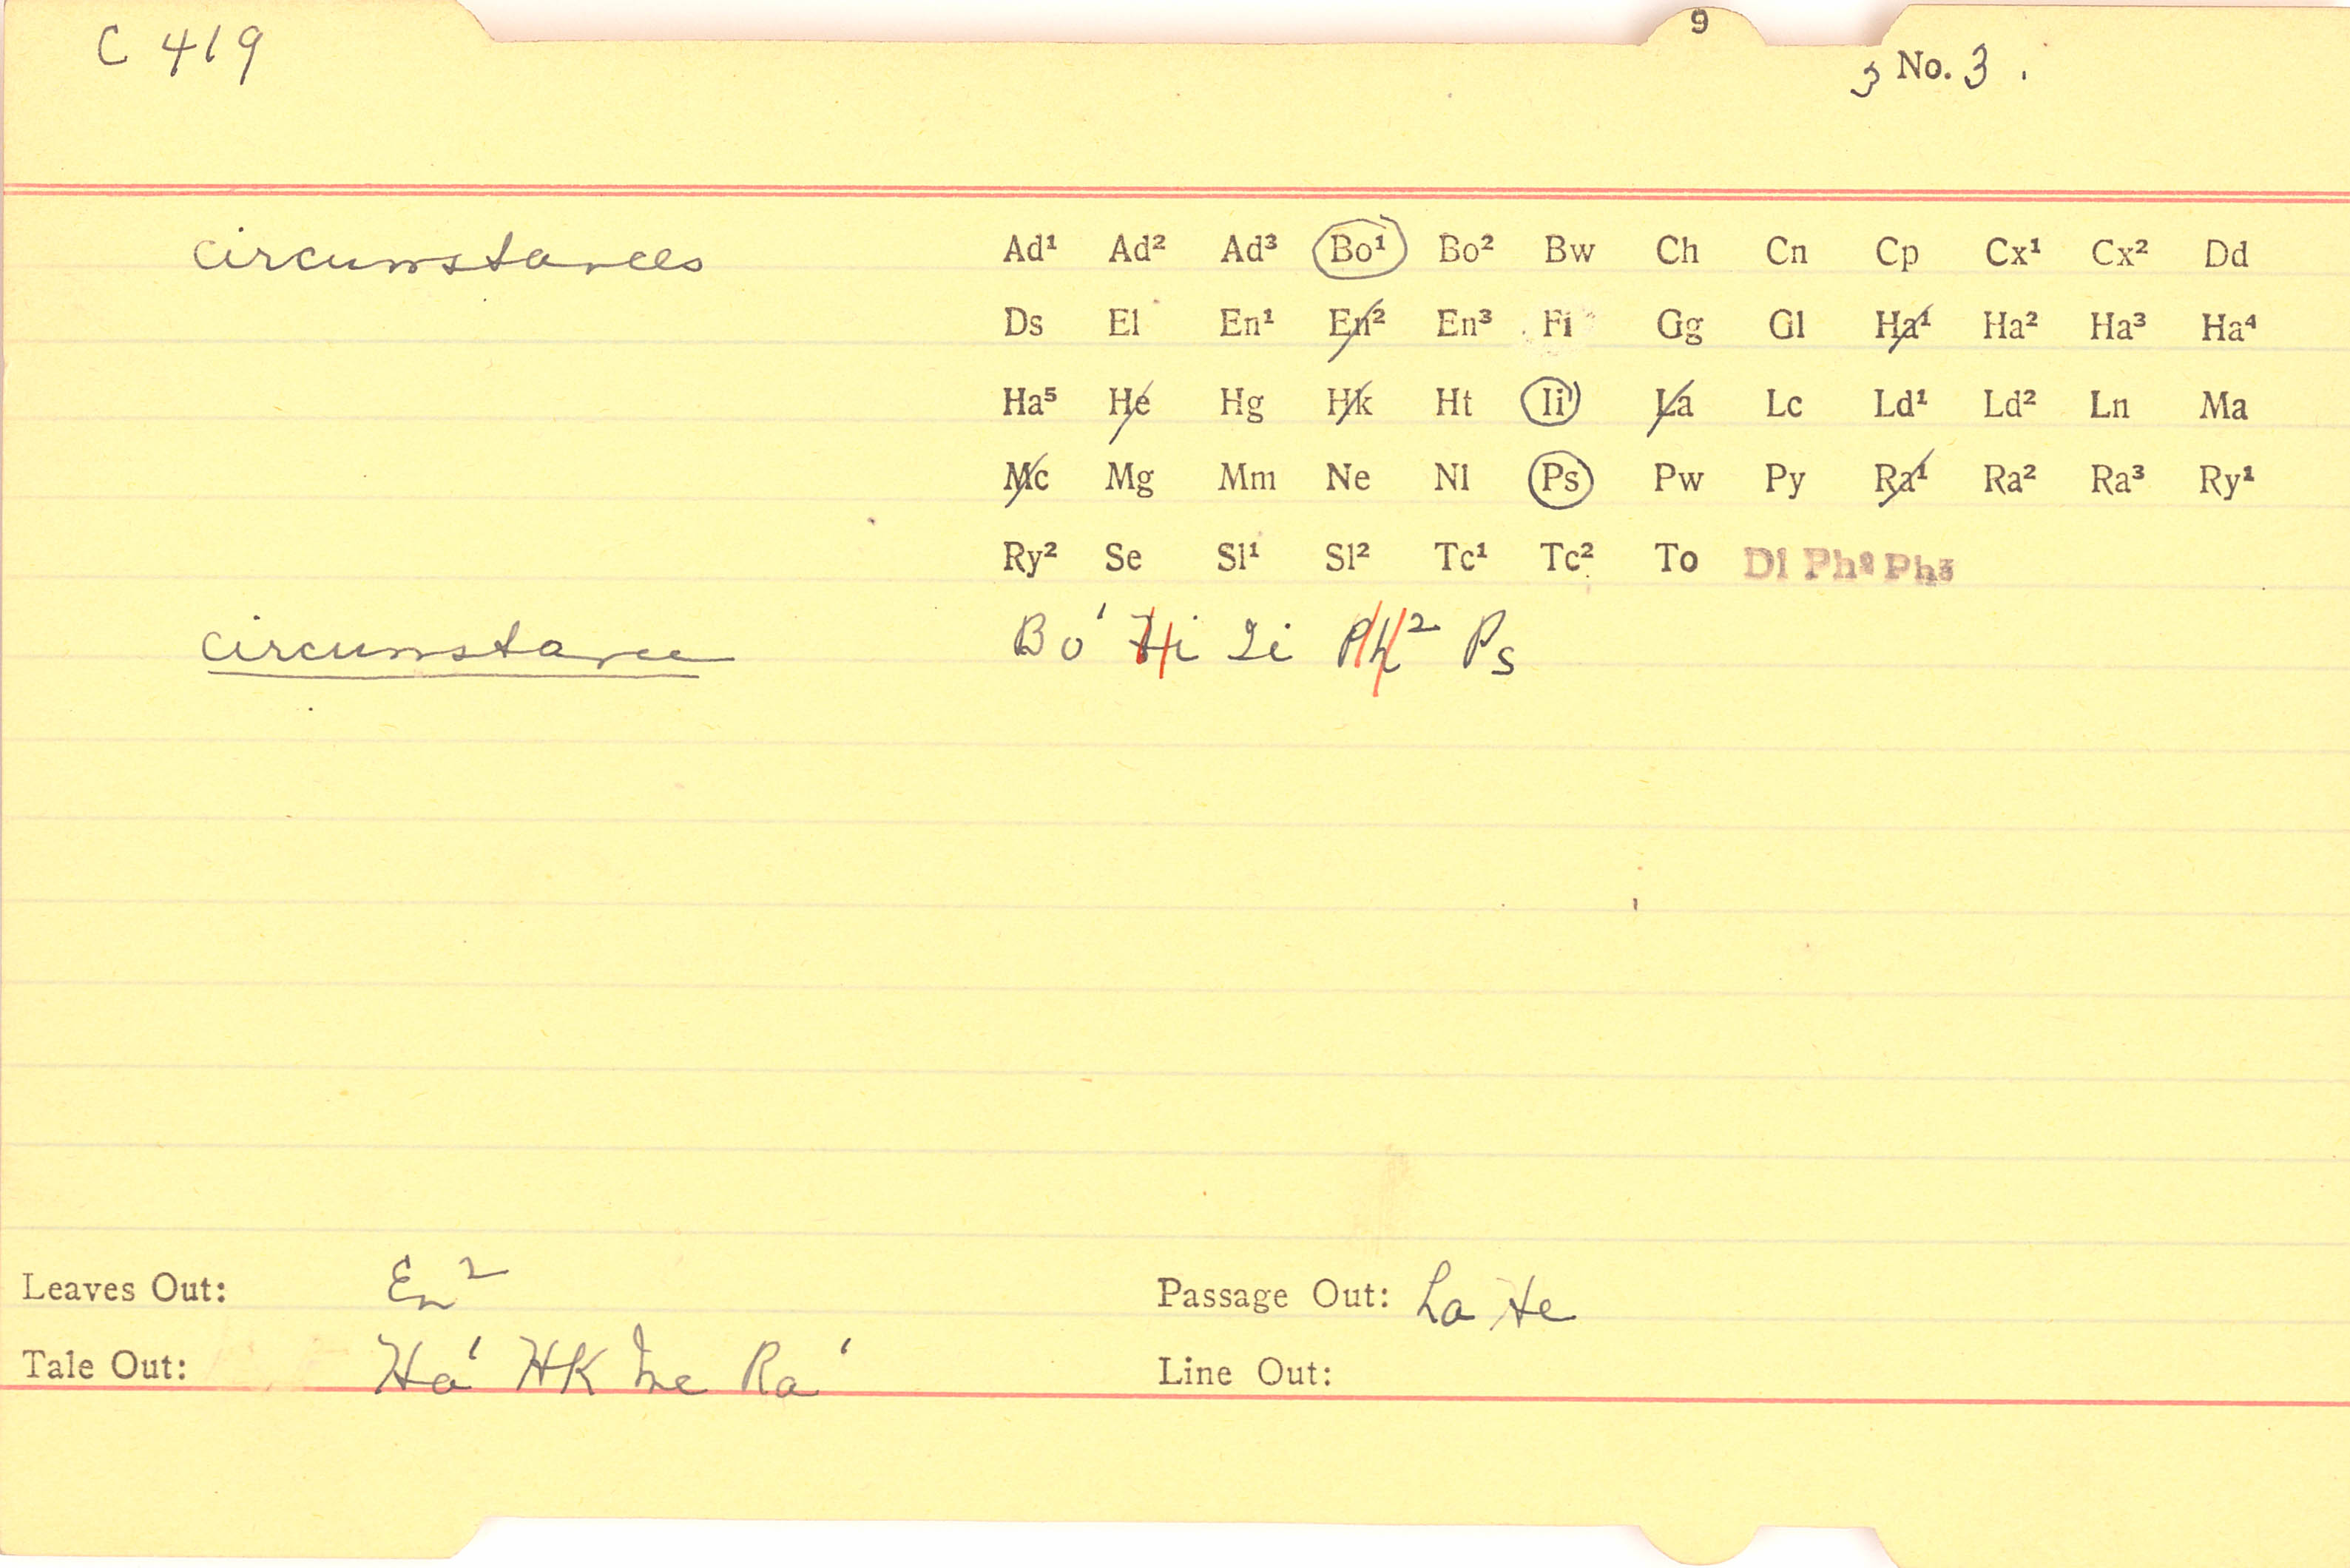 9
C 419 3 No. 3.
circumstances Ad¹ Ad² Ad³ Bo¹ Bo² Bw Ch Cn Cp Cx¹ Cx² Dd
Ds El En¹ En² En³ Fi Gg Gl Ha¹ Ha² Ha³ Ha⁴
Ha⁵ He Hg Hk Ht Ii La Lc Ld¹ Ld² Ln Ma
Mc Mg Mm Ne Nl Ps Pw Py Ra¹ Ra² Ra³ Ry¹
Ry² Se Sl¹ Sl² Tc¹ Tc² To Dl Ph² Ph³
circumstance Bo¹ Hi Ii Ph² Ps
Leaves Out: En² Passage Out: La He
Tale Out: Ha¹ HK Mc Ra¹ Line Out: